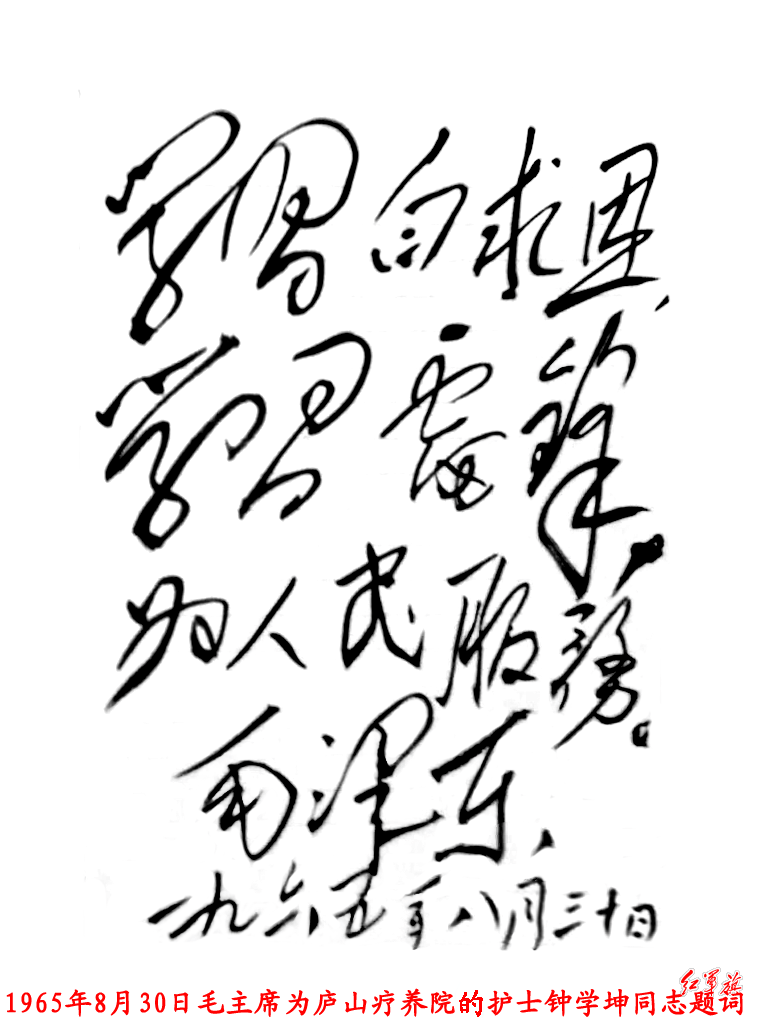 学习白求恩,
学习雷锋。
为人民服務。
毛泽东
一九六五年八月三十日
红军旗
1965年8月30日毛主席为庐山疗养院的护士钟学坤同志题词